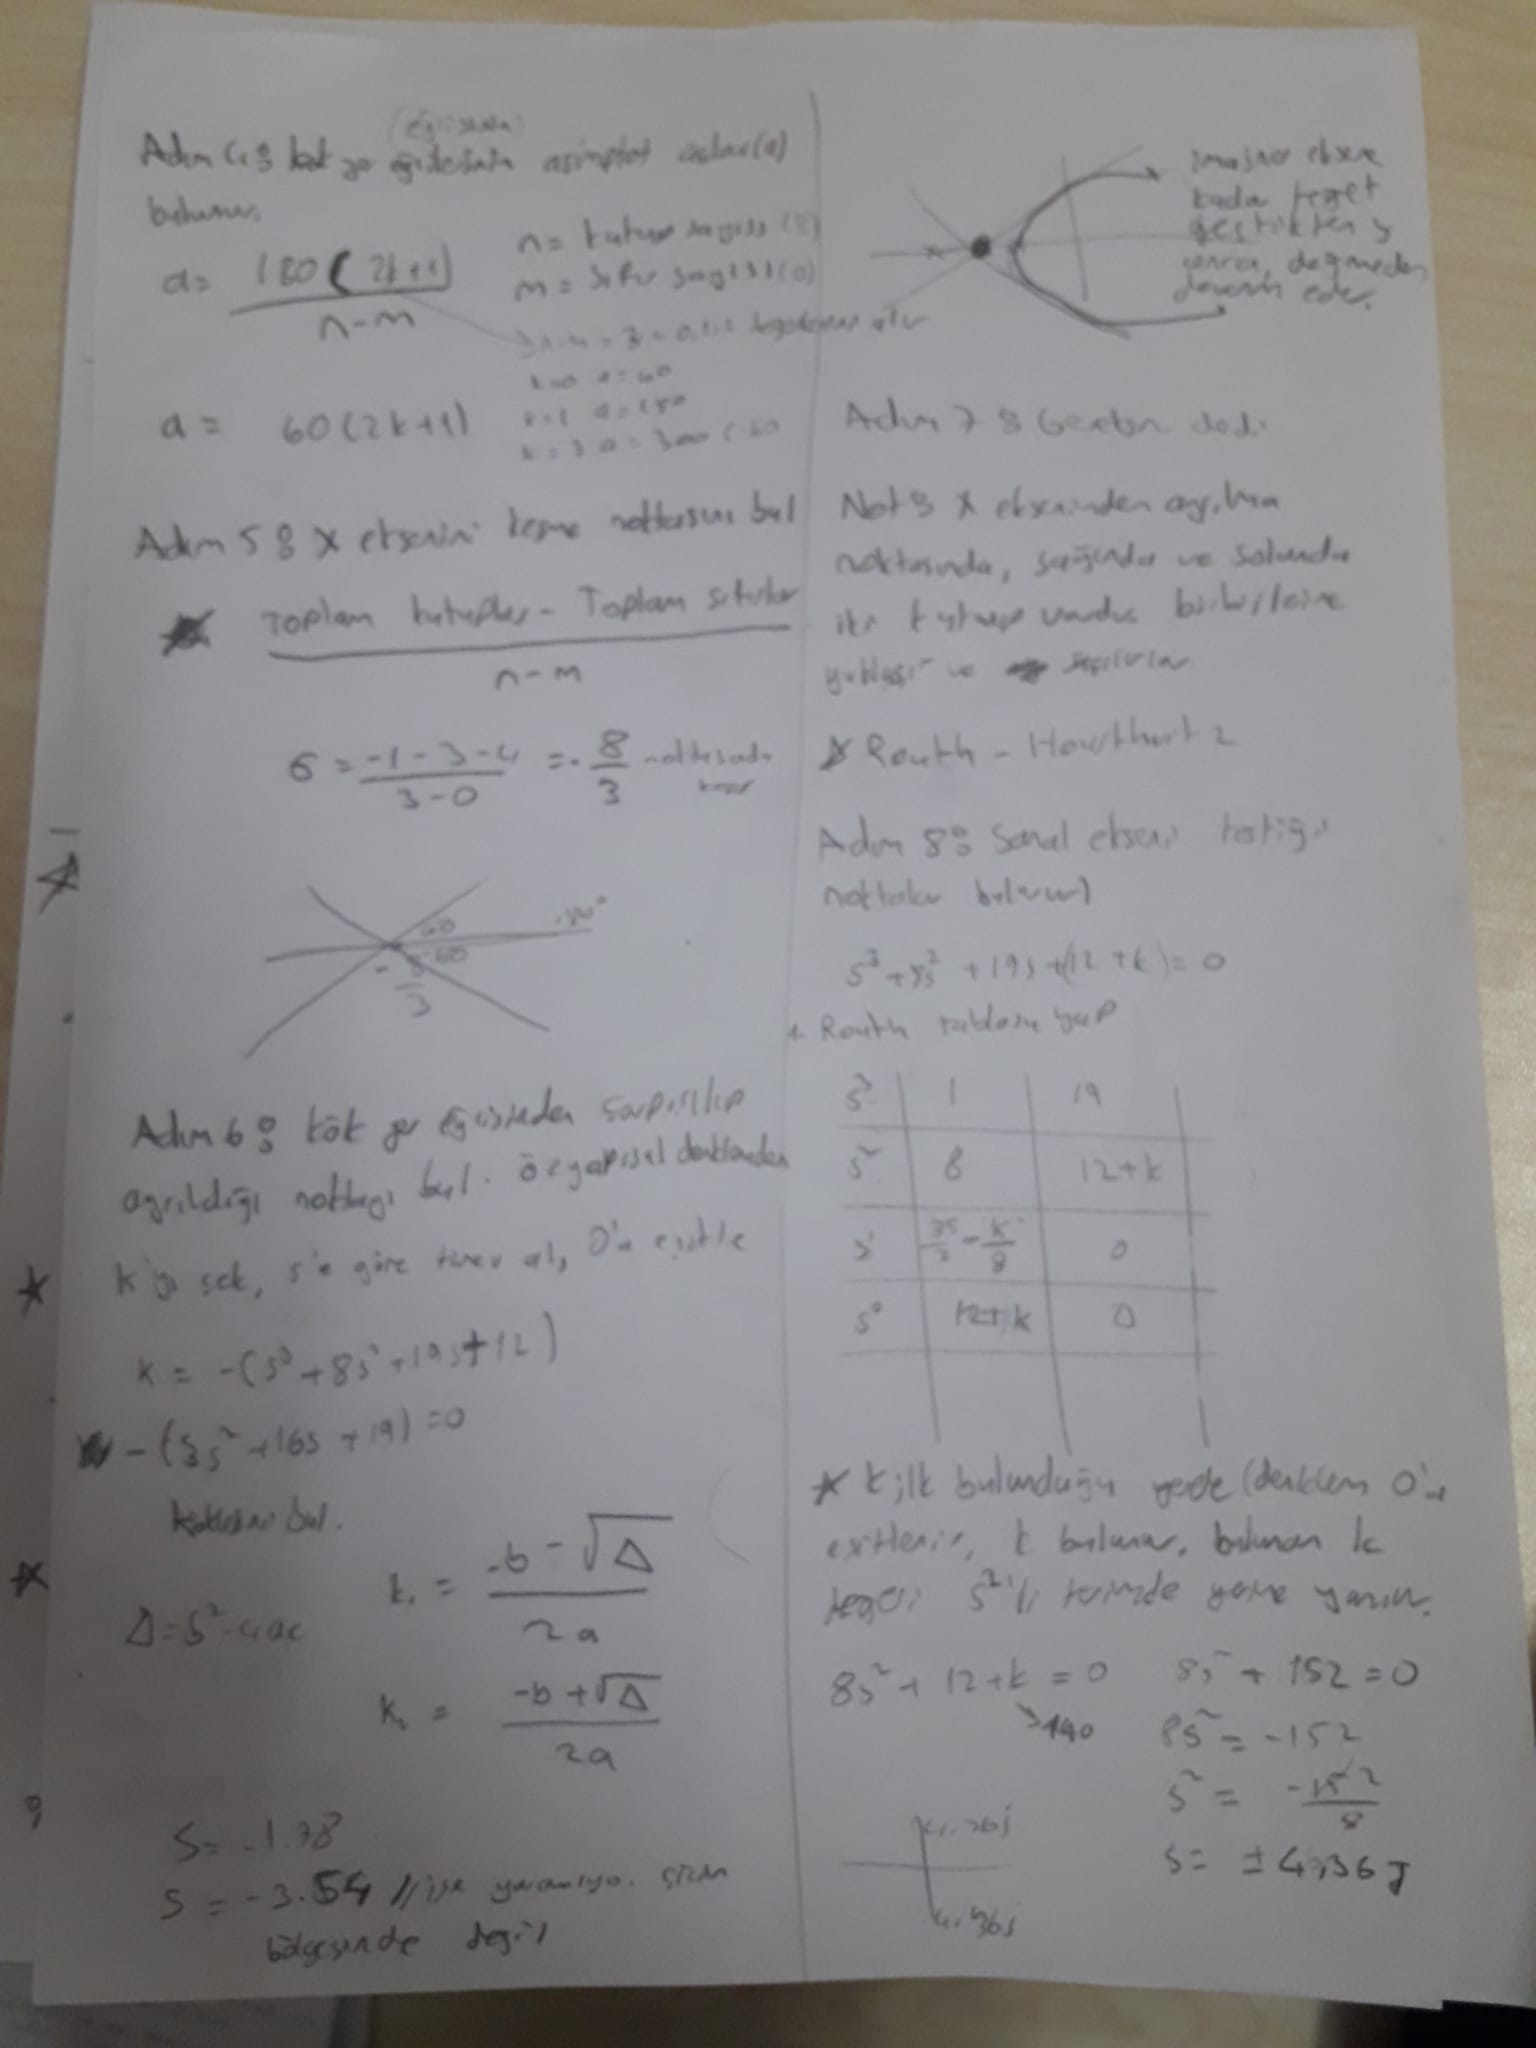 (eğrisinin)
Adım 4: kök yer eğrilerinin asimptot açıları (a)
bulunur.
a = 180(2k+1)
n-m
n = kutup sayısı (3)
m = sıfır sayısı (0)
n-m = 3 = 0,1,2 değerlerini alır
k=0 a=60
k=1 a=180
k=3 a=300 (-60
a = 60(2k+1)
Adım 5: X eksenini kesme noktasını bul
Toplam kutuplar - Toplam sıfırlar
n-m
σ = -1-3-4 = - 8 noktasında
3-0 3 keser
60 180°
60
- 8
3
Adım 6: kök yer eğrisinden çarpışılıp
ayrıldığı noktayı bul. Özyapısal denklemden
K'yı çek, s'e göre türev al, 0'a eşitle
K = -(s³+8s²+19s+12)
-(3s²+16s+19) =0
kökleri bul.
Δ=b²-4ac
k₁ = -b-√Δ
2a
k₂ = -b+√Δ
2a
S= -1.78
S = -3.54 // işe yaramıyo. çizim
bölgesinde değil
imajner eksene
kadar teğet
geçtikten
sonra, değmeden
devam eder.
Adım 7: Gerek yok dedi
Not: X ekseninden ayrılma
noktasında, sağında ve solunda
iki kutup vardır birbirlerine
yaklaşır ve saçılırlar
Routh - Howthurt z
Adım 8: Sanal ekseni kestiği
noktalar bulunur)
s³+8s²+19s+(12+k)=0
Routh tablosu yap
s³ 1 19
s² 8 12+k
s¹ 35/2 - k/8 0
s⁰ 12+k 0
* k ilk bulunduğu yerde (denklem 0'a
eşitlenir, k bulunur, bulunan k
değeri s²'li terimde yerine yazılır.
8s²+12+k = 0
140
8s²+152=0
8s² = -152
s² = -152
8
s = ±4,36j
4.36j
4.36j